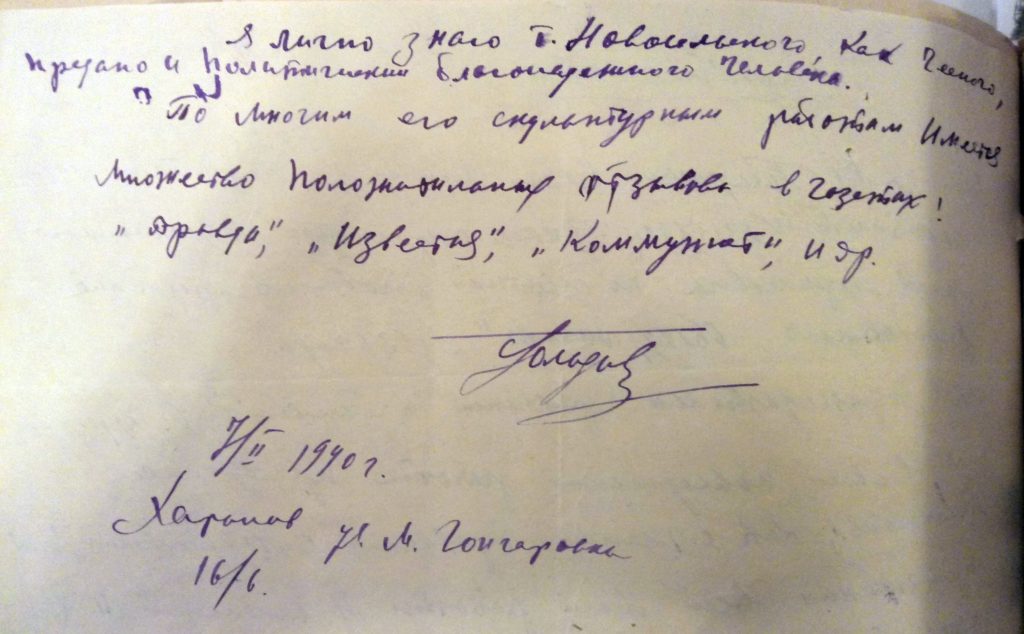 Я лично знаю т. Новосельского, как честного,
предано и политически благонадежного человека.
По многим его скульптурным работам имеется
множество положительных отзывов в газетах!
„Правда", „Известия", „Коммунист", и др.
7/II 1940 г.
Харьков ул. М. Гончаровка
16/6.